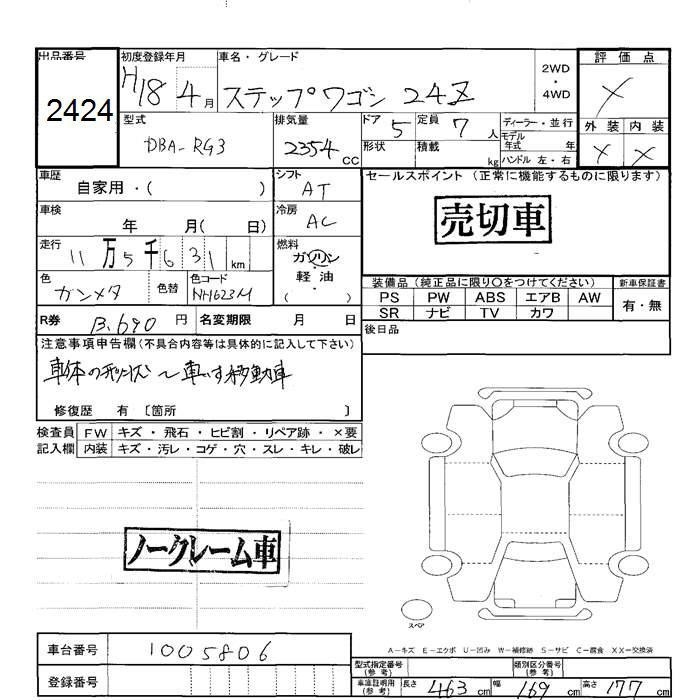 出品番号 初度登録年月 車名・グレード 2WD ・ 4WD 評価点
2424 H18 4月 ステップワゴン 24Z X
型式 排気量 ドア 定員 ディーラー・並行 外装 内装
DBA-RG3 2354CC 5 7人 モデル年式 年 X X
形状 積載 kg ハンドル 左・右
車歴 シフト セールスポイント (正常に機能するものに限ります)
自家用・( ) AT
車検 冷房 売切車
年 月( 日) AC
走行 燃料
11万5千631km ガソリン
軽・油
( ・ )
色 色替 色コード 装備品 (純正品に限り〇をつけてください) 新車保証書
ガンメタ NH623M PS PW ABS エアB AW 有・無
SR ナビ TV カワ
R券 13,690円 名変期限 月 日 後日品
注意事項申告欄 (不具合内容等は具体的に記入して下さい)
車体の形状〜車いす移動車
修復歴 有 〔箇所 〕
検査員 FW キズ・飛石・ヒビ割・リペア跡・×要
記入欄 内装 キズ・汚レ・コゲ・穴・スレ・キレ・破レ
ノークレーム車
スペア
A-キズ E-エクボ U-凹み W-補修跡 S-サビ C-腐食 XX-交換済
車台番号 1005806
型式指定番号(参考) 類別区分番号(参考)
登録番号 車庫証明用(参考) 長さ 463cm 幅 169cm 高さ 177cm